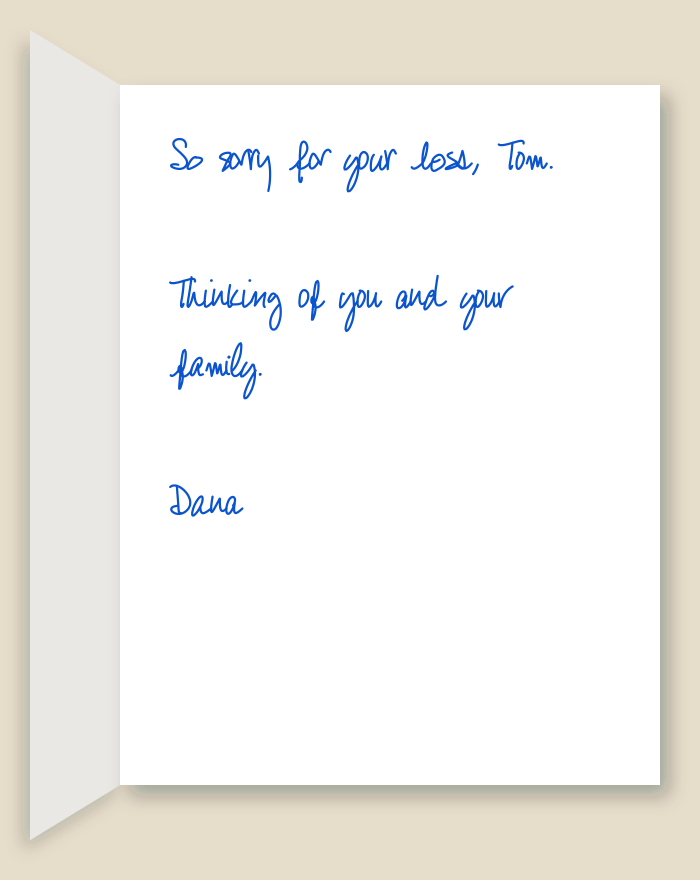 So sorry for your loss, Tom.
Thinking of you and your
family.
Dana